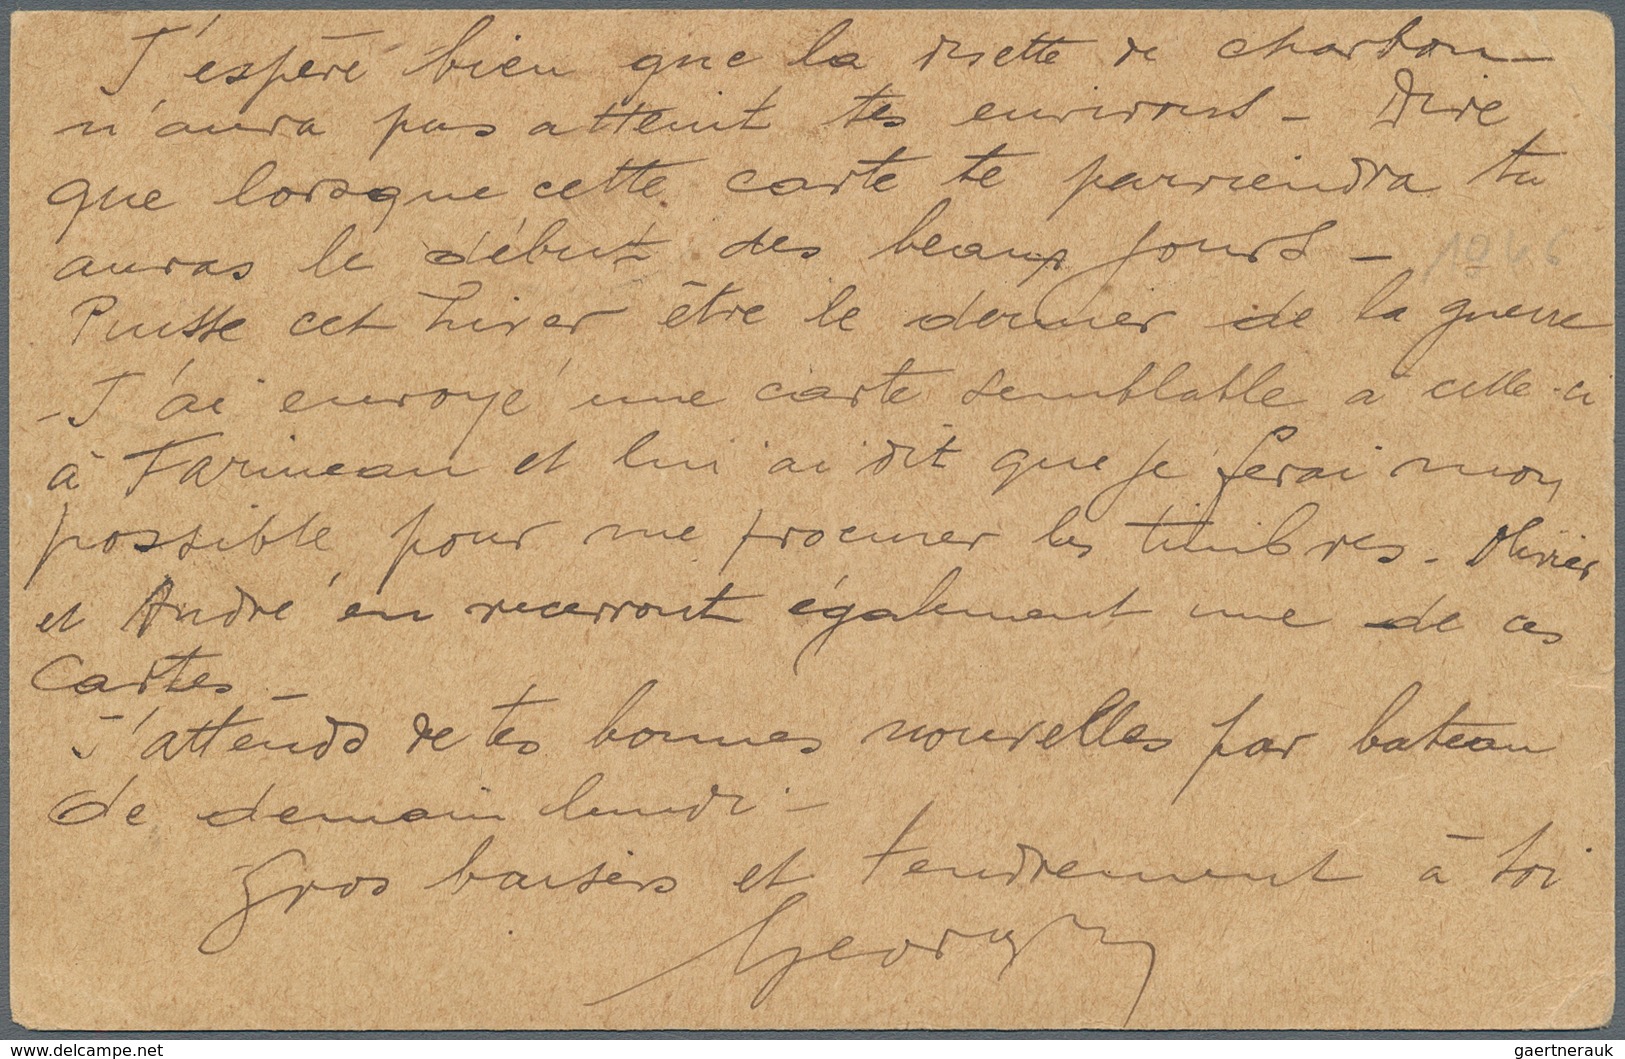 J'espère bien que la disette de charbon
n'aura pas atteint tes environs - Dire
que lorsque cette carte te parviendra tu
auras le début des beaux jours -
Puisse cet hiver être le dernier de la guerre
- J'ai envoyé une carte semblable à celle-ci
à Farineau et lui ai dit que je ferai mon
possible pour me procurer les timbres - Olivier
et André en recevront également une de ces
Cartes -
J'attends de tes bonnes nouvelles par bateau
de demain lundi -
Gros baisers et tendrement à toi
Georges
www.delcampe.net
gaertnerauk